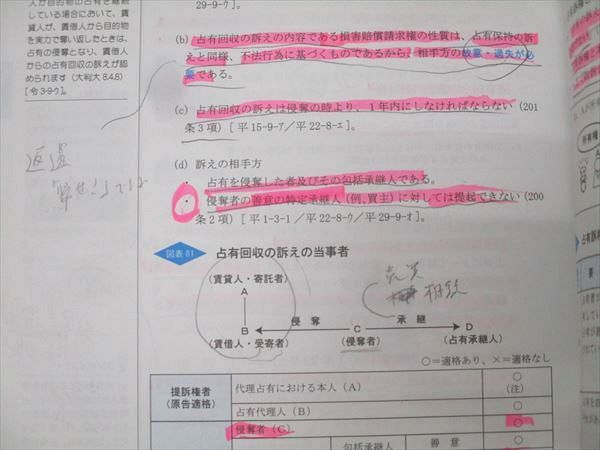 している場合において、賃
貸人が、賃借人から目的物
を実力で奪い返したときは、
占有の侵奪となり、賃借人
からの占有回収の訴えが認
められます（大判大 8.4.8）
[令3-9-ウ]。
29-9-ｵ]。
(b) 占有回収の訴えの内容である損害賠償請求権の性質は、占有保持の訴
えと同様、不法行為に基づくものであるから、相手方の故意・過失が必
要である。
(c) 占有回収の訴えは侵奪の時より、１年内にしなければならない（201
条３項）[平15-9-7／平22-8-ｴ]。
(d) 訴えの相手方
・ 占有を侵奪した者及びその包括承継人である。
・ 侵奪者の善意の特定承継人（例、買主）に対しては提起できない（200
条２項）[平1-3-1／平22-8-ｳ／平29-9-ｵ]。
図表 51 占有回収の訴えの当事者
（賃貸人・寄託者）
A
B
（賃借人・受寄者）
侵奪
C
（侵奪者）
承継
D
（占有承継人）
売買
相続
○＝適格あり、×＝適格なし
提訴権者
（原告適格）
代理占有における本人（A）
○
（注）
占有代理人（B）
○
侵奪者（C）
○
包括承継人
善意
○